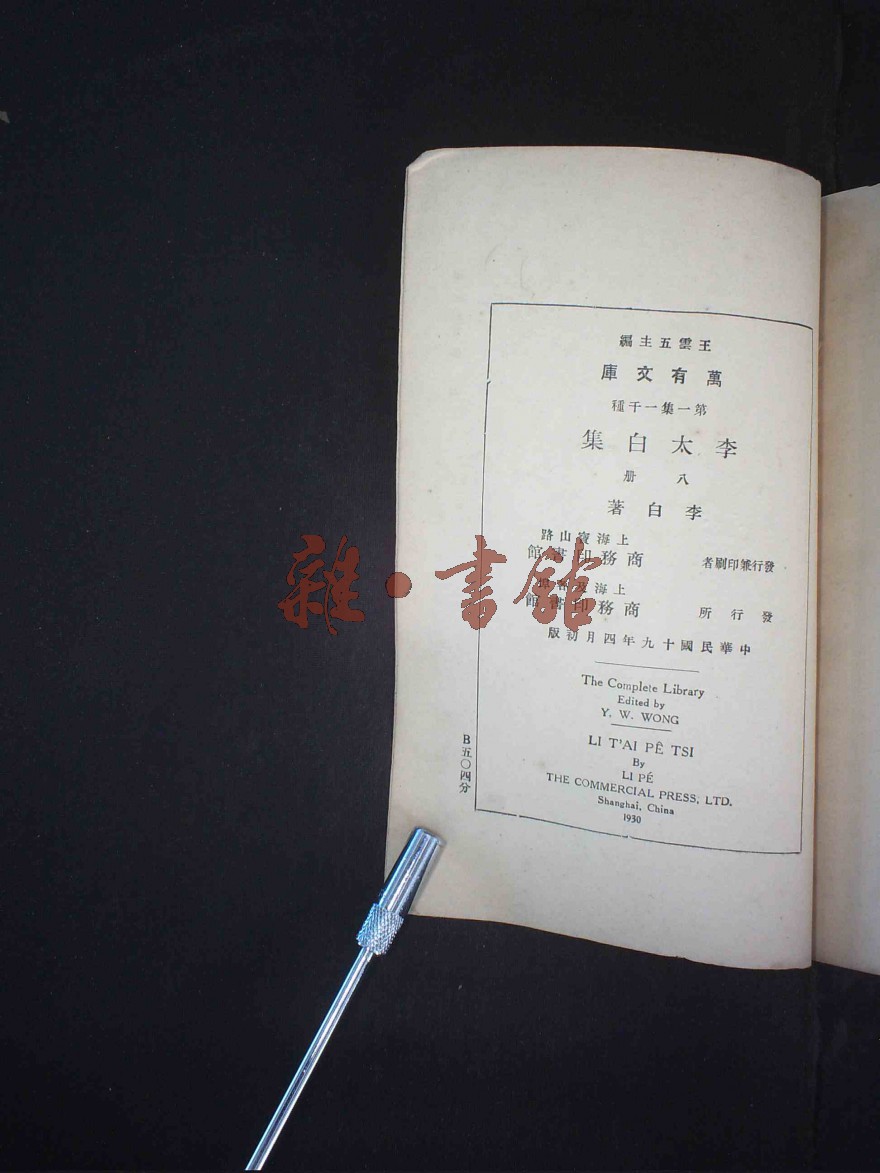 王雲五主編
萬有文庫
第一集一千種
李太白集
八冊
李白著
上海寶山路
發行兼印刷者 商務印書館
上海及各埠
發行所 商務印書館
中華民國十九年四月初版
The Complete Library
Edited by
Y. W. WONG
LI T'AI PÊ TSI
By
LI PÉ
THE COMMERCIAL PRESS, LTD.
Shanghai, China
1930
B五〇四分
雜·書館